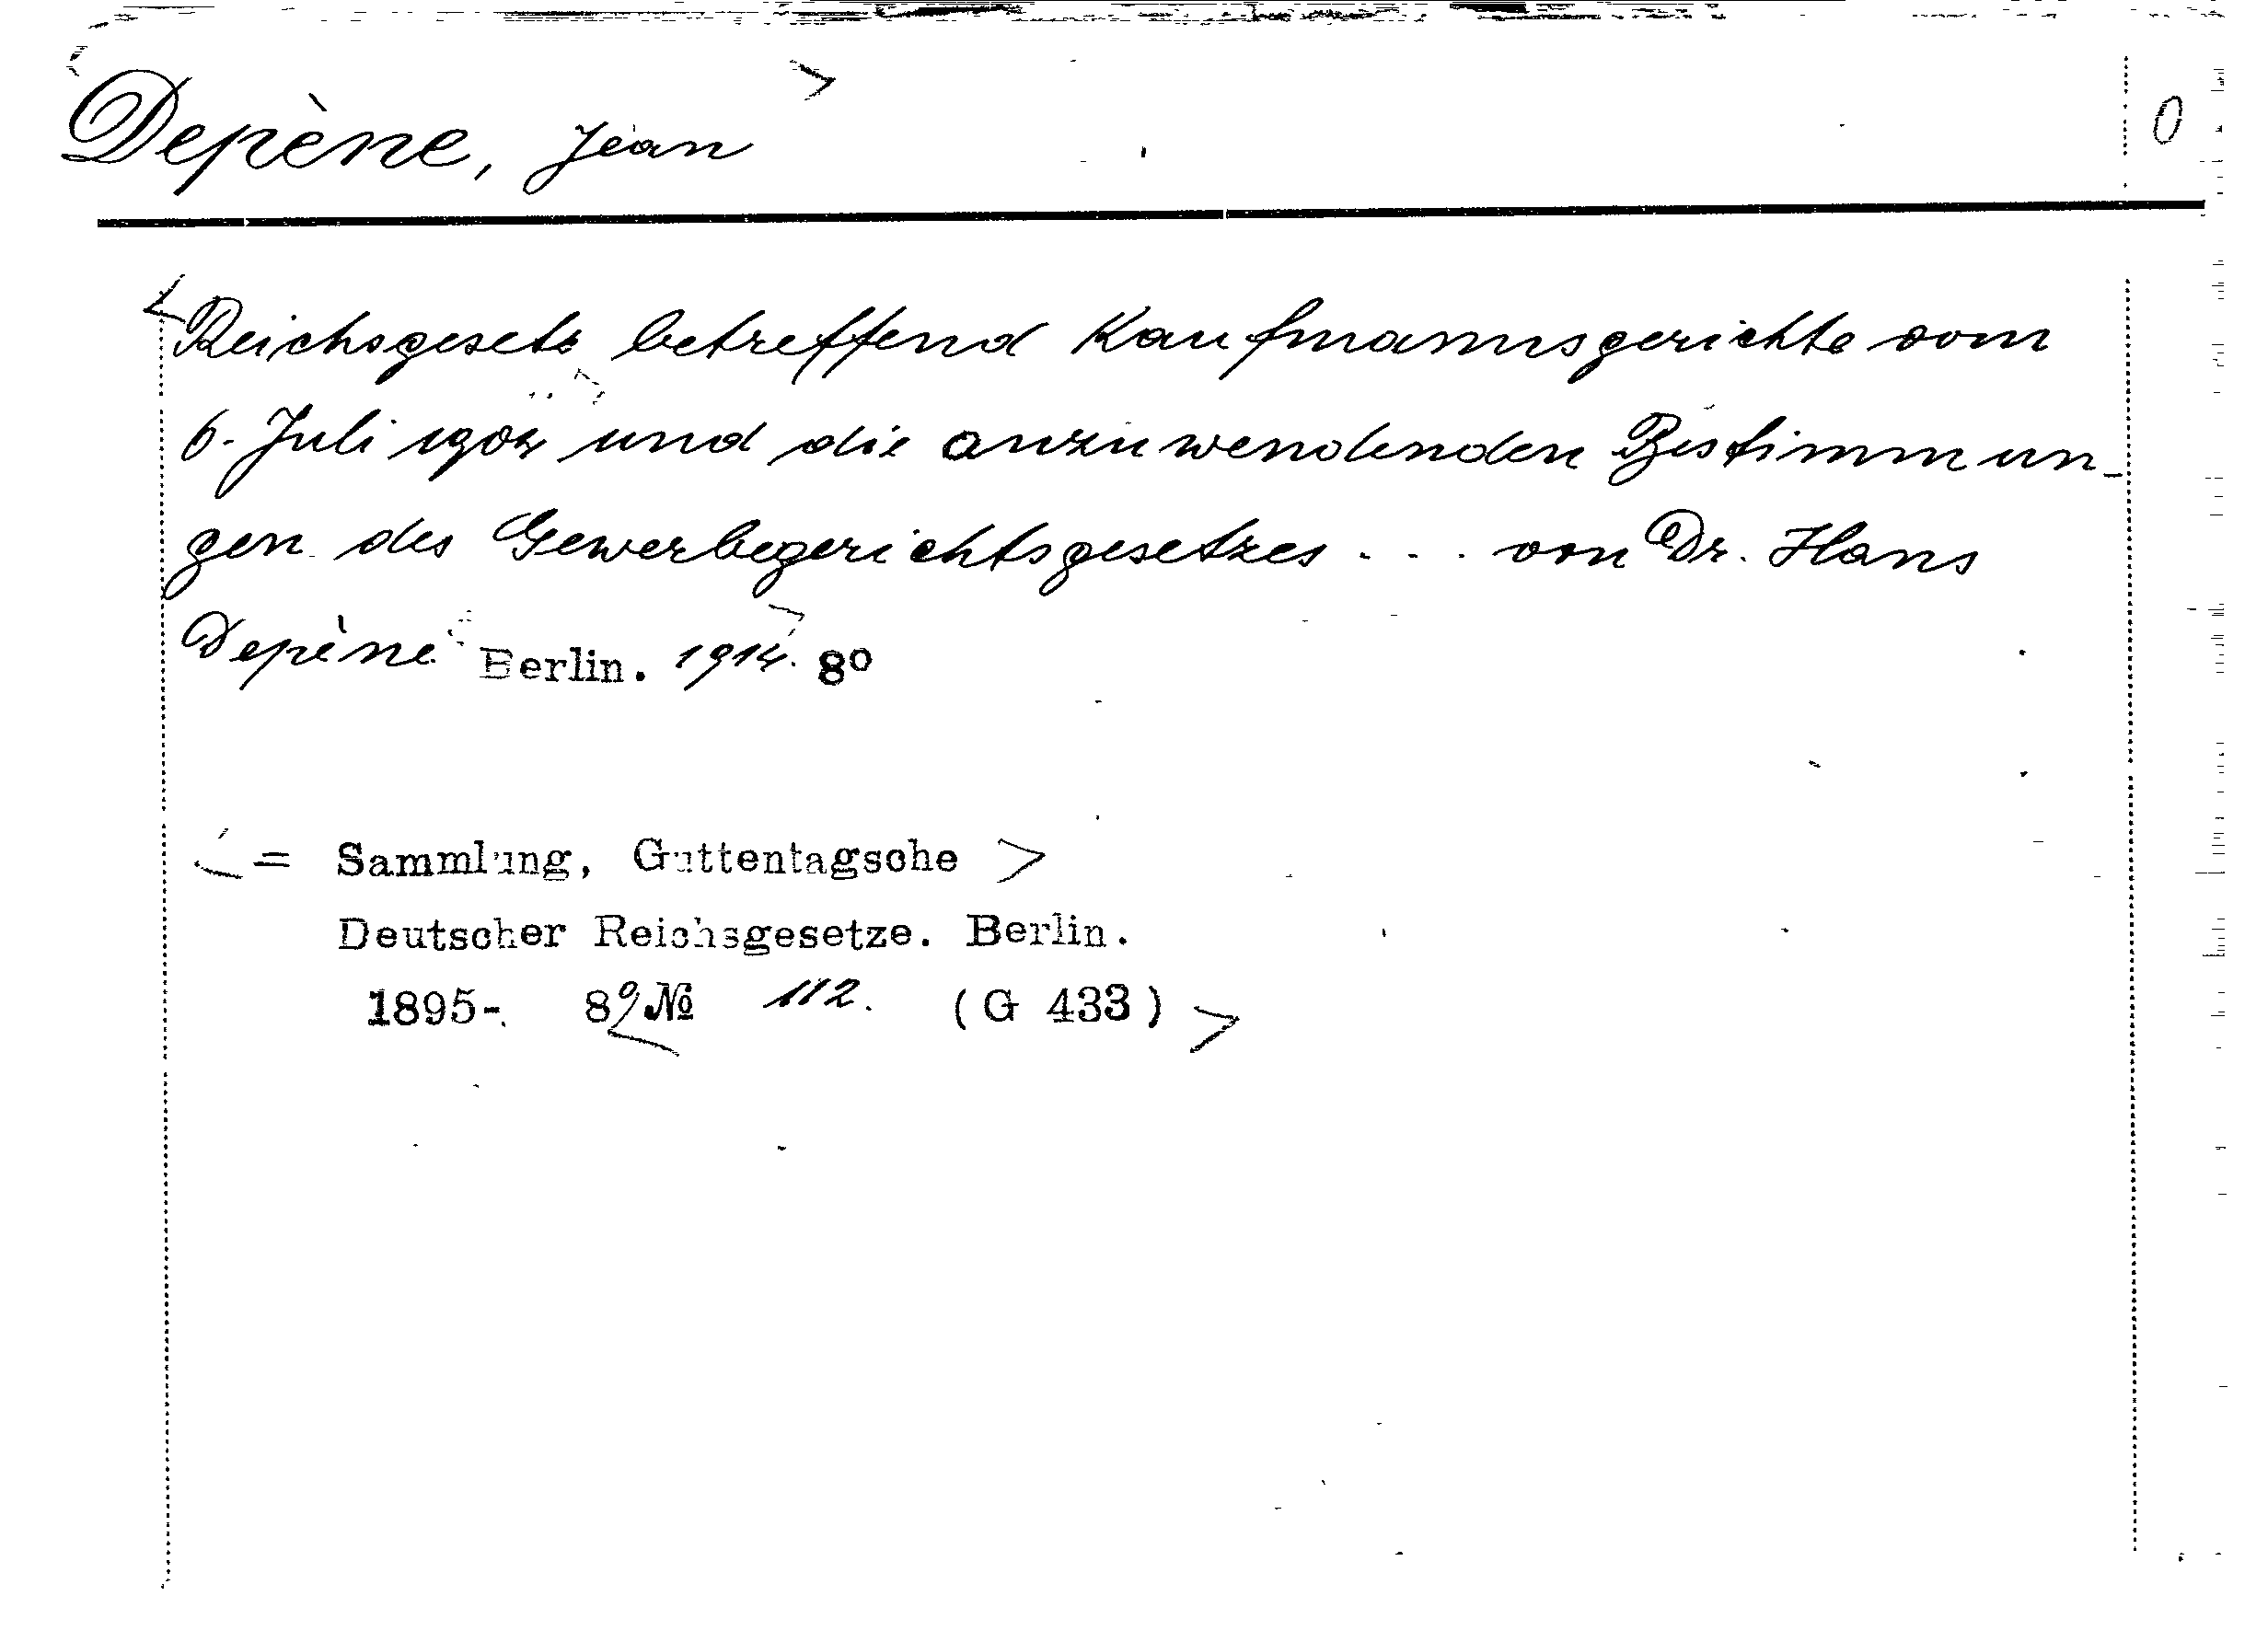 Depène, Jean
0
Reichsgesetz betreffend Kaufmannsgerichte vom
6. Juli 1904 und die anzuwendenden Bestimmun-
gen des Gewerbegerichtsgesetzes ... von Dr. Hans
Depène Berlin. 1914. 8º
= Sammlung, Guttentagsche
Deutscher Reichsgesetze. Berlin.
1895-. 8º № 112. (G 433)